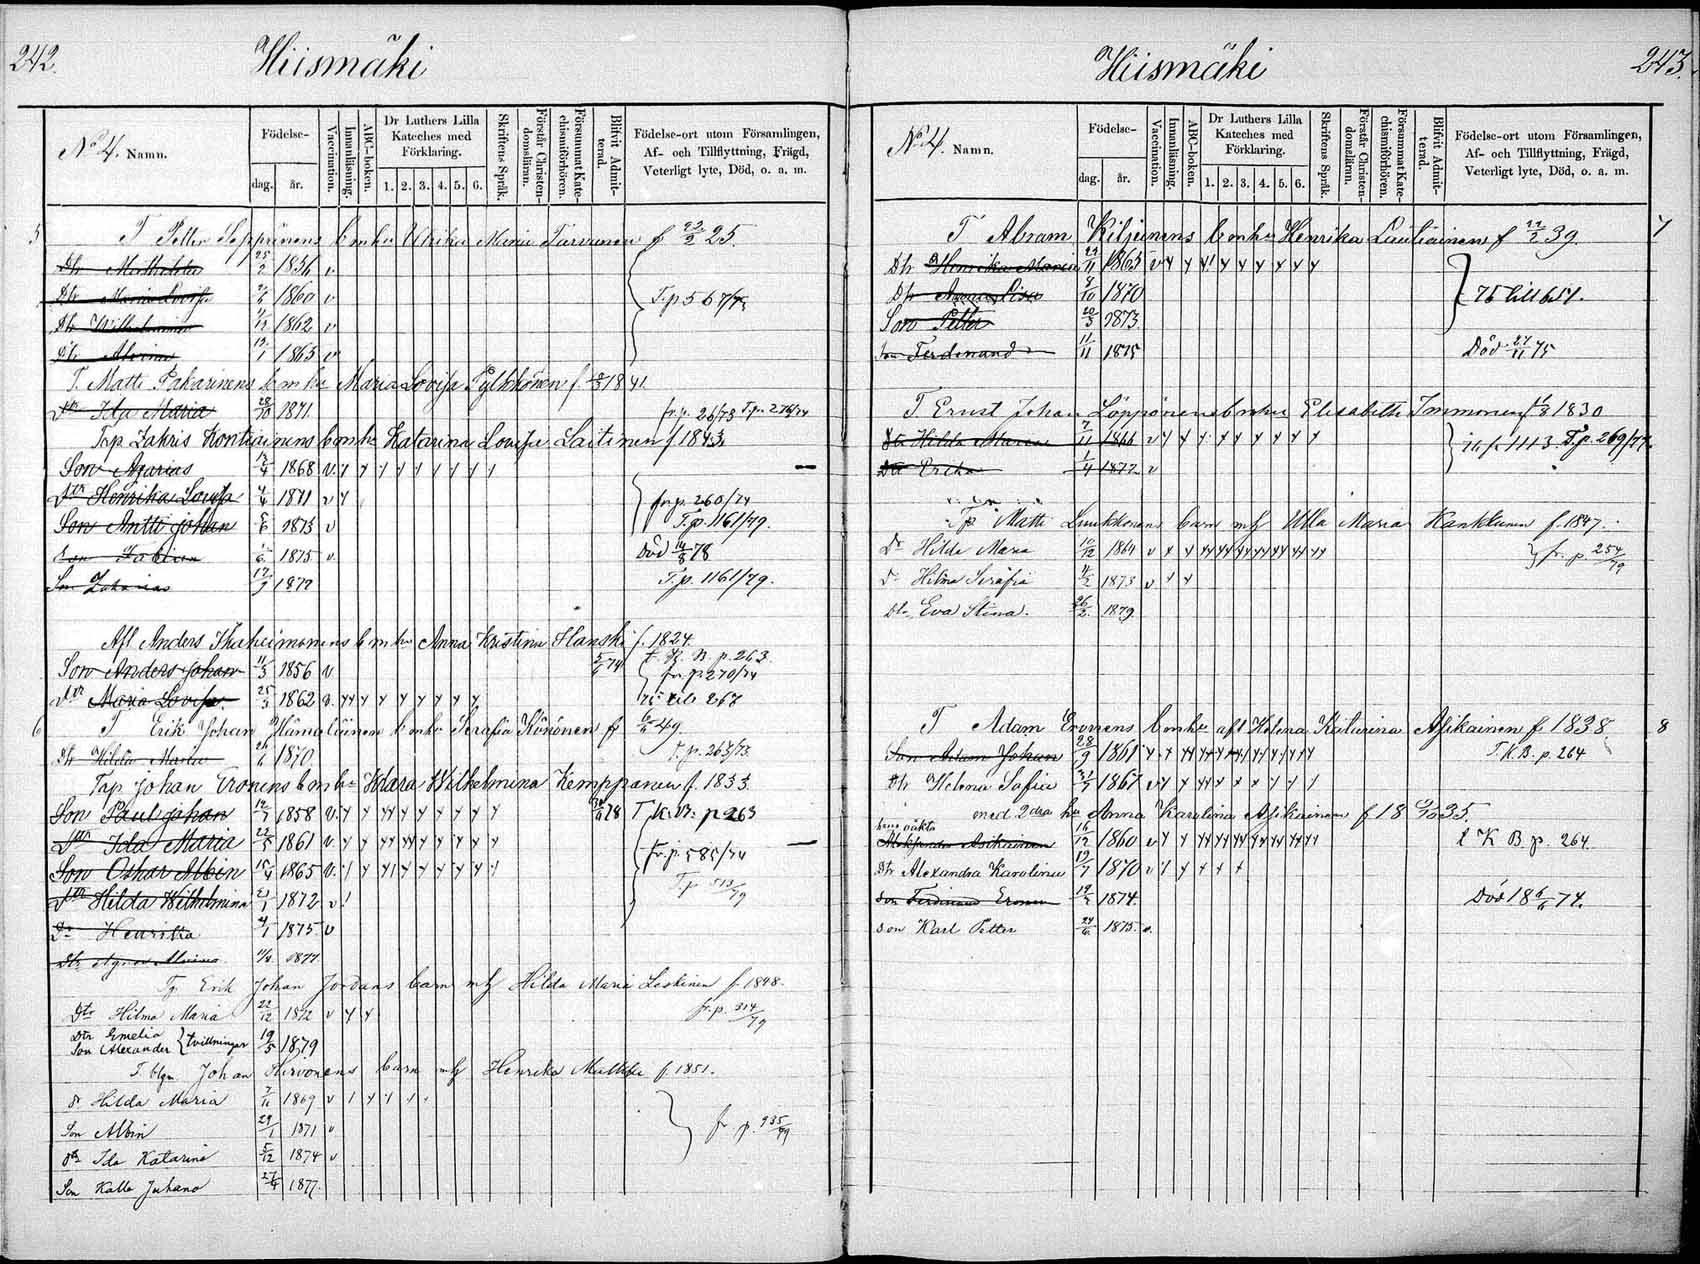 242.
Hiismäki
No 4. Namn.
Födelse-
dag. år.
Vaccination.
Innanläsning.
ABC-boken.
Dr Luthers Lilla Kateches med Förklaring.
1. 2. 3. 4. 5. 6.
Skriftens Språk.
Förstår Christendomslärnn.
Försummat Katechismiförhören.
Blifvit Admitterad.
Födelse-ort utom Församlingen, Af- och Tillflyttning, Frägd, Veterligt lyte, Död, o. a. m.
5 T Petter Sepponens b m hu Ulrika Maria Tarvanen f 23/9 25.
Dtr Mathilda 25/2 1856 v
Dtr Maria Lovisa 1860 v T.p 567/73
Dtr Wilhelmina 1862 v
Dtr Alvina 13/1 1865 v
T. Matti Pakarinens b m hu Maria Lovisa Pylkkönen f. 1841.
Dtr Ida Maria 28/10 1871. fr.p. 26/73 T.p. 276/74
Torp Zakris Kontiainens b m hu Katarina Lovisa Laitinen f 1843
Son Asarias 13/4 1868 v.
Dtr Henrika Lovisa 4/4 1871 v fr.p. 260/74
Son Antti Johan 1873 v T.p. 1161/79.
Son Fabian 1875 v. Död 14/8 78
Son Zakarias 17/9 1877 T.p. 1161/79.
Afl Anders Ikäheimonens b m hu Anna Kristina Hanski f. 1824.
Son Anders Johan 11/3 1856 v 74 t. K. B. p. 263.
fr p 270/74
Dtr Maria Lovisa 25/3 1862 v. 75 till 267
6 T Erik Johan Hämäläinen b m hu Serafia Könönen f 49
Dtr Hilda Maria 1870 T.p. 263/73.
Torp Johan Eronens b m hu Klara Wilhelmina Kemppanen f. 1833.
Son Paul Johan 19/7 1858 v. 78 T K.B. p 263
Dtr Ida Maria 22/5 1861 v fr.p. 585/74
Son Oskar Albin 15/4 1865 v. T.p 513/79
Dtr Hilda Wilhelmina 21/1 1872 v
Dr Henrika 4/1 1875 v
Dtr Agnes Alvina 1877.
Tp Erik Johan Jordans barn m h Hilda Maria Leskinen f. 1848.
Dtr Hilma Maria 22/12 1872 v fr.p. 314/79
Dtr Emelia
Son Alexander } tvillningar 19/5 1879
T. Johan Hirvonens barn m h Henrika f. 1851.
d. Hilda Maria 7/11 1869 v
Son Albin 29/1 1871 v fr p. 935/79
dtr Ida Katarina 5/12 1874 v
Son Kalle Juhana 27/4 1877.
Hiismäki
243.
No 4. Namn.
Födelse-
dag. år.
Vaccination.
Innanläsning.
ABC-boken.
Dr Luthers Lilla Kateches med Förklaring.
1. 2. 3. 4. 5. 6.
Skriftens Språk.
Förstår Christendomslärnn.
Försummat Katechismiförhören.
Blifvit Admitterad.
Födelse-ort utom Församlingen, Af- och Tillflyttning, Frägd, Veterligt lyte, Död, o. a. m.
T Abram Kiljunens b m hu Henrika Luukiainen f 22/2 39. 7
Dtr Henrika Maria 21/11 1865 v
Dtr Anna Lisa 8/10 1870 75 till 651.
Son Petter 20/3 1873
Son Ferdinand 11/11 1875 Död 27/11 75
T Ernst Johan Löppönens b m hu Elisabeth Immonen f 1830
Dtr Hilda Maria 7/11 1866 v 76 fr 1113. T.p. 269/77.
Dtr Erika 1/4 1872 v
Tp Matti Luukkonens barn m h Ulla Maria Kankkunen f. 1847.
Dr Hilda Maria 10/12 1864 v fr. p. 254/79
Dr Hilma Serafia 4/2 1873 v
Dtr Eva Stina. 26/2 1879.
T Adam Eronens b m hu afl Helena Katarina Asikainen f 1838. 8
Son Adam Johan 28/9 1861 T.K.B. p. 264
Dtr Helena Sofia 1867 v
med 2dra hu Anna Karolina Asikainen f 18 35.
hens oäkta
Aleksander Asikainen 16/12 1860 v t K B p. 264.
Dtr Alexandra Karolina 13/7 1870 v
Son Ferdinand Eronen 19/2 1874. Död 18 6/6 74.
Son Karl Petter 24/6 1875. v.